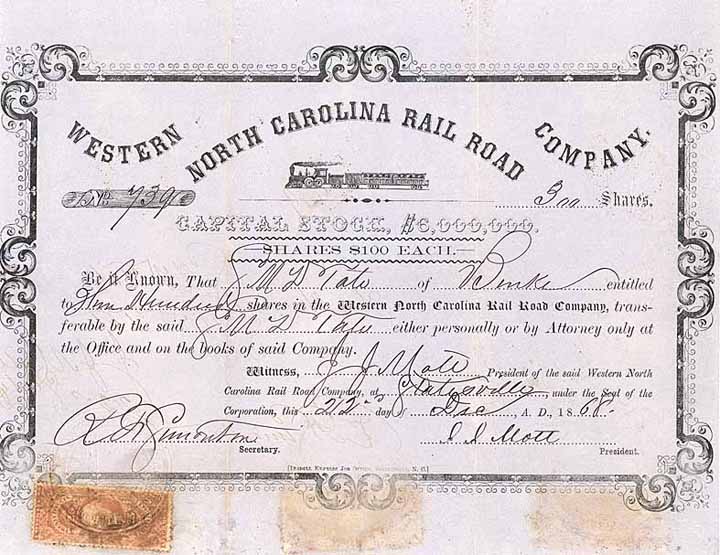 WESTERN NORTH CAROLINA RAIL ROAD COMPANY.
No. 739 300 Shares.
CAPITAL STOCK, $6,000,000.
SHARES $100 EACH.
Be it Known, That M L Tate of Burke entitled
to Three Hundred shares in the Western North Carolina Rail Road Company, trans-
ferable by the said M L Tate either personally or by Attorney only at
the Office and on the books of said Company.
Witness, J J Mott President of the said Western North
Carolina Rail Road Company, at Statesville under the Seal of the
Corporation, this 22 day Dec A. D., 1868.
R F Simonton J J Mott
Secretary. President.